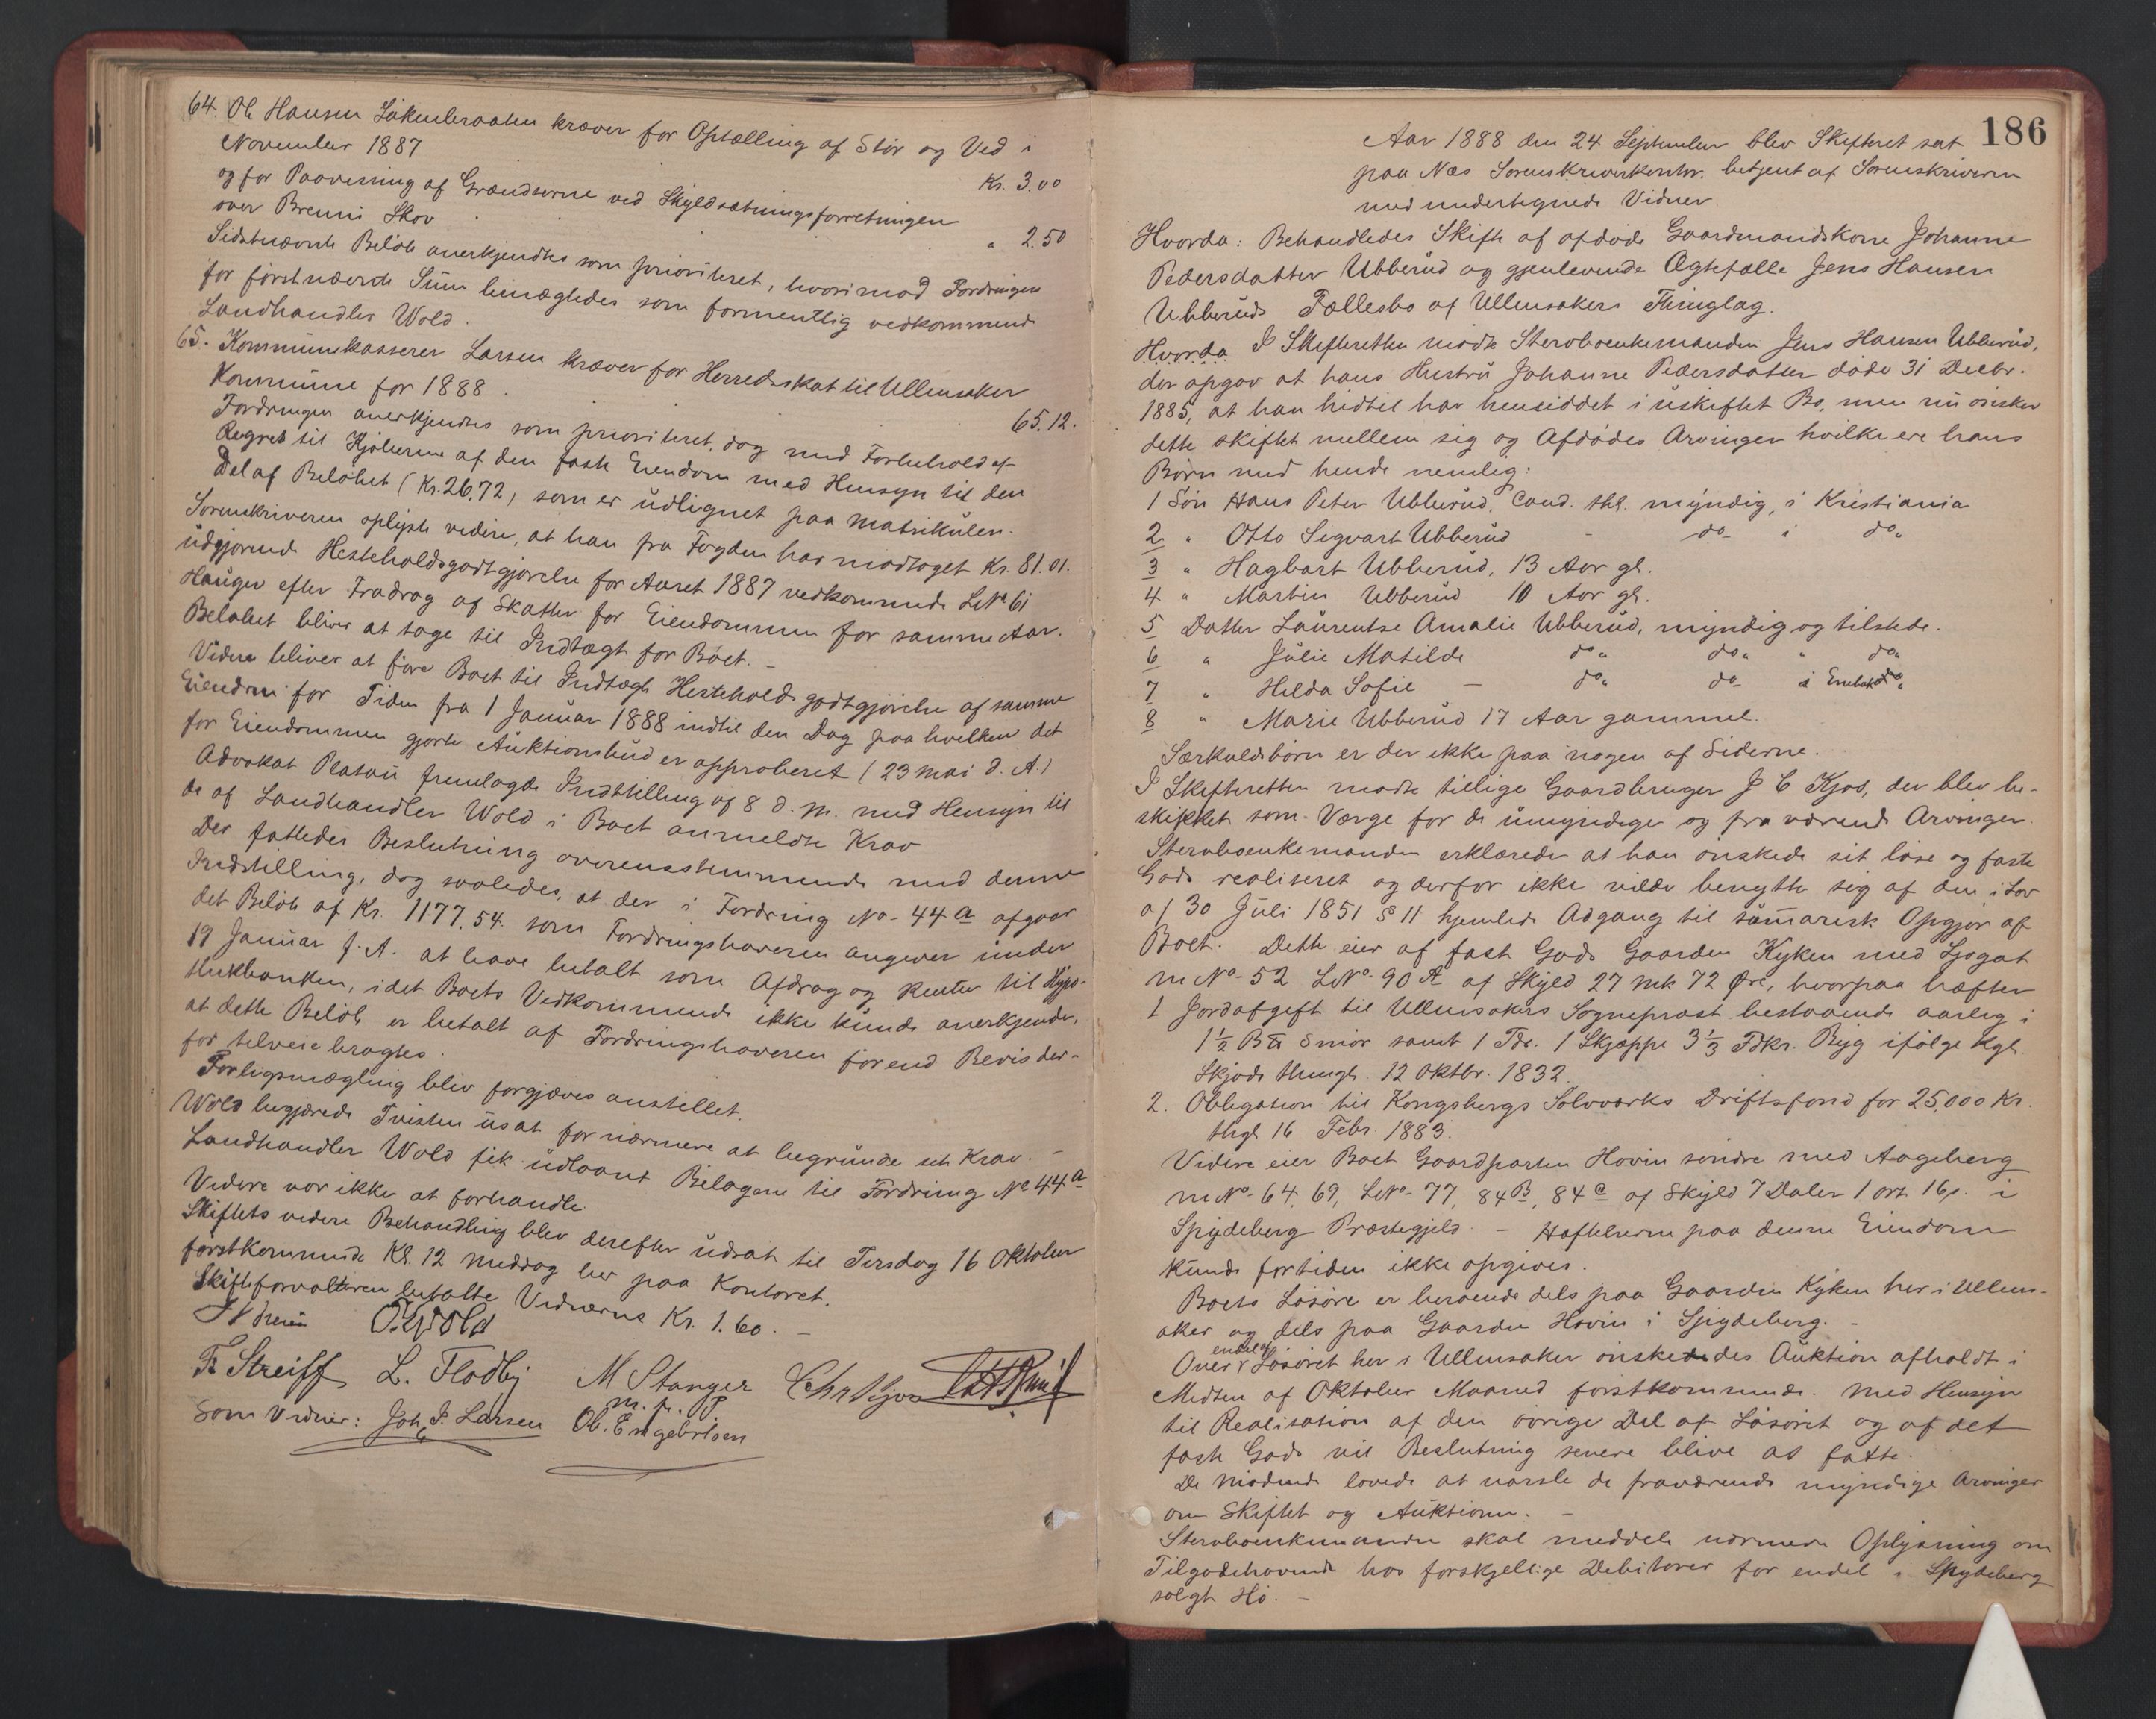 64. Ole Hansen Låkenbraaten kræver for Optælling af Stör og Ved i
November 1887
Kr. 3.00
og for Paavisning af Grændserne ved Skyldsætningsforretningen
over Brenni Skov " 2.50
Sidstnævnte Belöb anerkjendtes som prioriteret, hvorimod Fordringen
for förstnævnte Sum benægtedes som formentlig vedkommende
Landhandler Wold.
65. Kommunekasserer Larsen kræver for Herredsskat til Ullensaker
Kommune for 1888
65.12.
Fordringen anerkjendtes som prioriteret, dog med Forbehold af
Regres til Kjöberne af den faste Eiendom med Hensyn til den
Del af Belöbet (Kr. 26.72) som er udlignet paa Matrikulen.
Sorenskriveren oplyste videre, at han fra Fogden har modtaget Kr. 81.01.
udgjörende Hesteholdsgodtgjörelse for Aaret 1887 vedkommende LNo 61
Hauger efter Fradrag af Skatter for Eiendommen for samme Aar.
Belöbet bliver at tage til Indtægt for Boet. –
Videre bliver at före Boet til Indtægt Hesteholdsgodtgjörelse af samme
Eiendom for Tiden fra 1 Januar 1888 indtil den Dag paa hvilken det
for Eiendommen gjorte Auktionsbud er approberet (23 Mai d. A.)
Advokat Platou fremlagde Indstilling af 8 d. M. med Hensyn til
de af Landhandler Wold i Boet anmeldte Krav
Der fattedes Beslutning overensstemmende med denne
Indstilling, dog saaledes, at der i Fordring No 44a afgaar
det Belöb af Kr. 1177.54. som Fordringshaveren angiver under
19 Januar f. A. at have betalt som Afdrag og Renter til Hypo-
thekbanken, idet Boets Vedkommende ikke kunde anerkjende,
at dette Belöb er betalt af Fordringshaveren förend Bevis der-
for tilveiebragtes.
Forligsmægling blev forgjæves anstillet.
Wold begjærede Tvisten udsat for nærmere at begrunde sit Krav. –
Landhandler Wold fik udlaant Bilagene til Fordring No 44a
Videre var ikke at forhandle.
Skiftets videre Behandling blev derefter udsat til Tirsdag 16 Oktober
förstkommende Kl. 12 Middag her paa Kontoret.
Skifteforvalteren betalte Vidnerne Kr. 1.60. –
O. Wold
Fr Streiff L. Fladby M Stanger Chr Kjos
m. p. P
Som Vidner: Joh. P. Larsen Ol. Engebritsen
186
Aar 1888 den 24 September blev Skifteret sat
paa Næs Sorenskriverkontor. betjent af Sorenskriveren
med undertegnede Vidner
Hvorda: Behandledes Skifte af afdöde Gaardmandskone Johanne
Pedersdatter Ubberud og gjenlevende Ægtefælle Jens Hansen
Ubberuds Fællesbo af Ullensakers Thinglag.
Hvorda I Skifteretten mödte Sterboenkemanden Jens Hansen Ubberud,
der opgav at hans Hustru Johanne Pedersdatter döde 31 Decbr.
1885, at han hidtil har hensiddet i uskiftet Bo, men nu önsker
dette skiftet mellem sig og Afdödes Arvinger hvilke ere hans
Börn med hende nemlig:
1 Sön Hans Peter Ubberud, Cand. thl. myndig, i Kristiania
2 " Otto Sigvart Ubberud - do i do
3 " Hagbart Ubberud, 13 Aar gl.
4 " Martin Ubberud 10 Aar gl.
5 Datter Laurentse Amalie Ubberud, myndig og tilstede.
6 " Julie Matilde do do " do
7 " Hilda Sofie – do do i Enebak
8 " Marie Ubberud 17 Aar gammel.
Særkuldsbörn er der ikke paa nogen af Siderne.
I Skifteretten mödte tillige Gaardbruger J C Kjos, der blev be-
skikket som Værge for de umyndige og fraværende Arvinger.
Sterboenkemanden erklærede at han önskede sit löse og faste
Gods realiseret og derfor ikke vilde benytte sig af den i Lov
af 30 Juli 1851 § 11 hjemlede Adgang til summarisk Opgjör af
Boet. Dette eier af fast Gods Gaarden Kyken med Ljøgat
mNo 52 LNo 90A af Skyld 27 Mk 72 Öre, hvorpaa hæfter
1 Jordafgift til Ullensakers Sogneprest bestaaende aarlig i
1½ B℔ Smör samt 1 Tdr. 1 Skjæppe 3⅓ Fdkr. Byg ifölge Kgl.
Skjöde thingl. 12 Oktbr. 1832.
2. Obligation til Kongsbergs Sölvværks Driftsfond for 25,000 Kr.
thgl 16 Febr. 1883.
Videre eier Boet Gaardparten Hovin söndre med Aageberg
mNo 64, 69, LNo 77, 84B, 84C af Skyld 7 Daler 1 ort 16 s. i
Spydeberg Præstegjeld. – Hæftelserne paa denne Eiendom
kunde for tiden ikke opgives.
Boets Lösöre er beroende dels paa Gaarden Kyken her i Ullens-
aker og dels paa Gaarden Hovin i Spydeberg. –
Over endel af Lösöret her i Ullensaker önskedes Auktion afholdt i
Midten af Oktober Maaned förstkommende. Med Hensyn
til Realisation af den övrige Del af Lösöret og af det
faste Gods vil Beslutning senere blive at fatte.
De Mödende lovede at varsle de fraværende myndige Arvinger
om Skiftet og Auktionen. –
Sterboenkemanden skal meddele nærmere Oplysning om
Tilgodehavende hos forskjellige Debitorer for endel i Spydeberg
solgt Hö. –